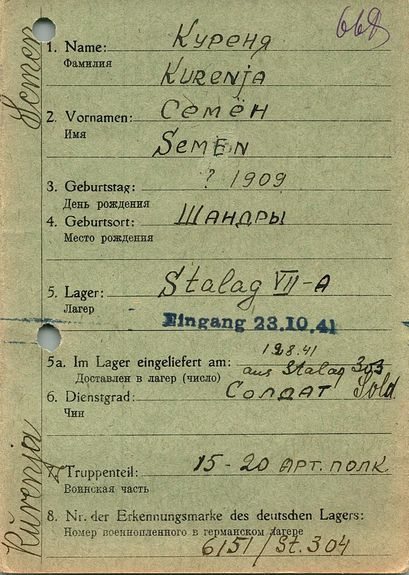 668
1. Name: Куреня
Фамилия
Kurenja
2. Vornamen: Семён
Имя
Semen
3. Geburtstag: ? 1909
День рождения
4. Geburtsort: Шандры
Место рождения
5. Lager: Stalag VII-A
Лагерь
Eingang 23.10.41
5a. Im Lager eingeliefert am: 12.8.41
aus Stalag
Доставлен в лагерь (число)
6. Dienstgrad: Солдат Sold.
Чин
7. Truppenteil: 15-20 арт. полк.
Воинская часть
8. Nr. der Erkennungsmarke des deutschen Lagers:
Номер военнопленного в германском лагере
6151/St. 304
Semen
Kurenja